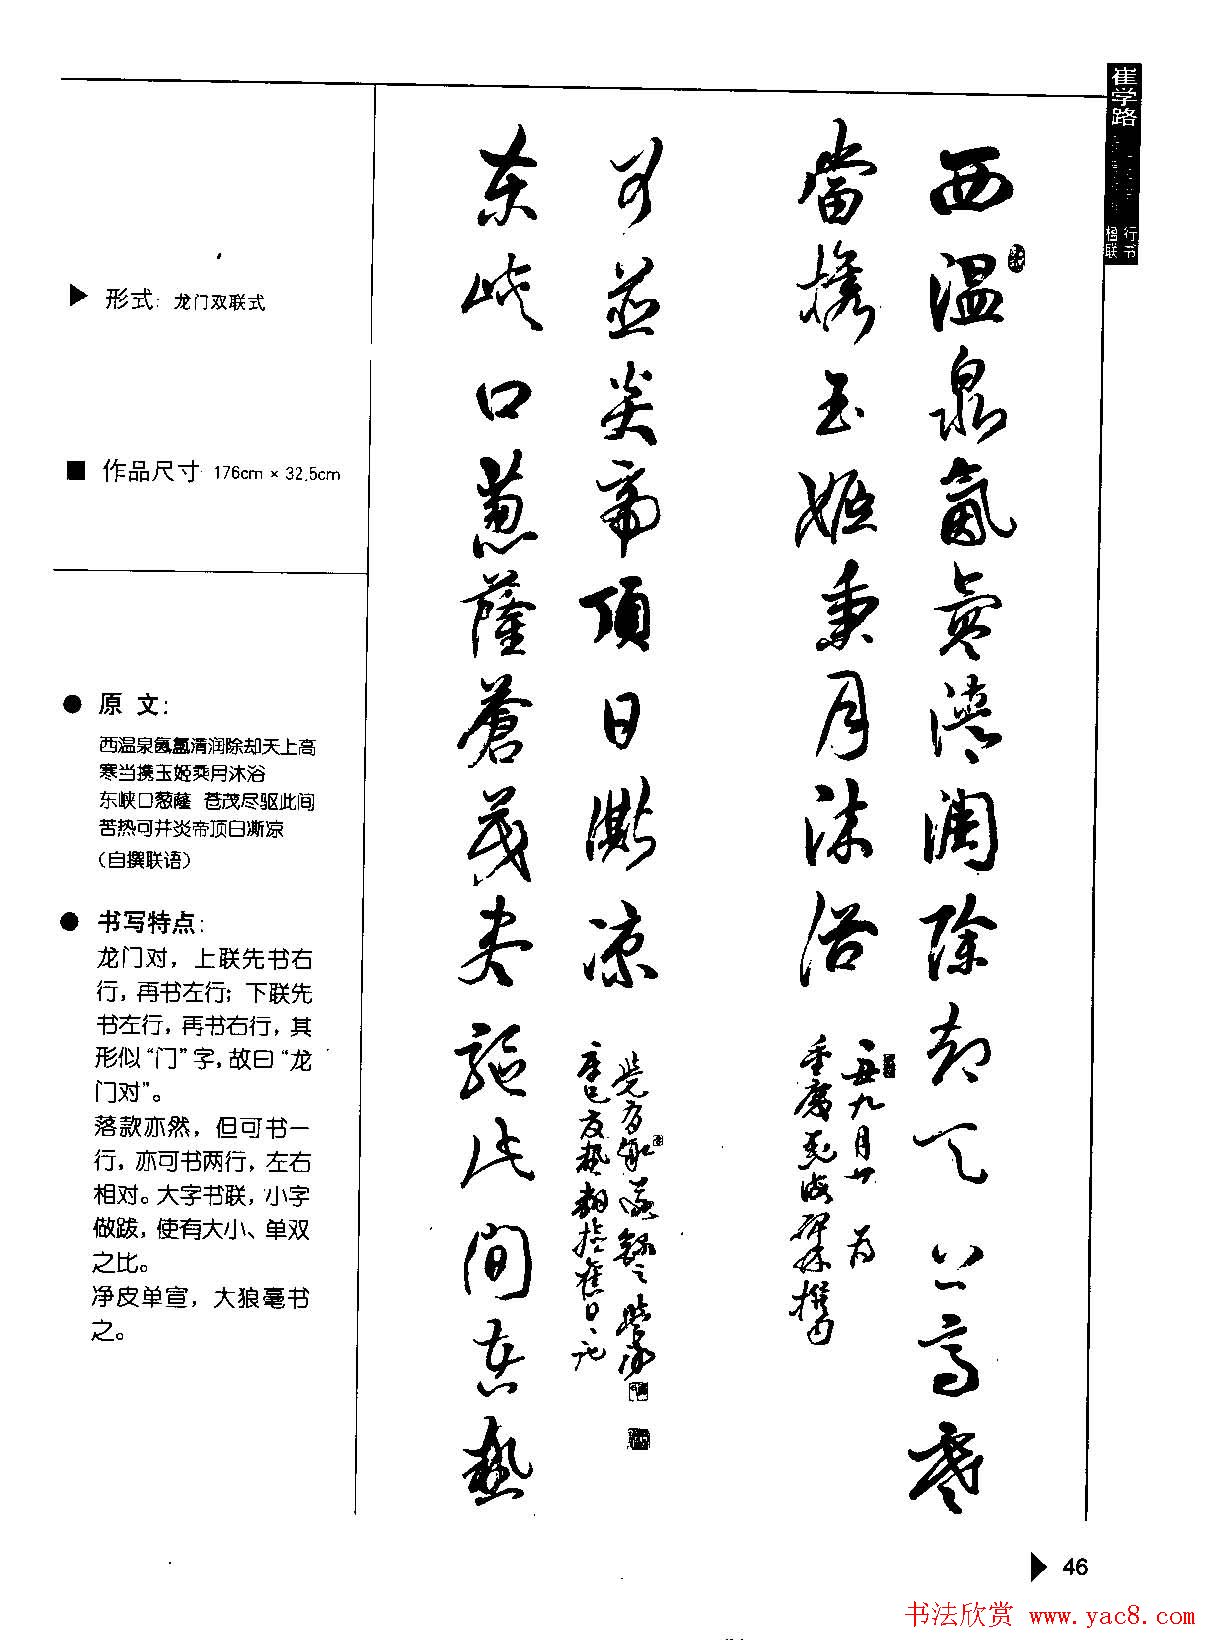 崔学路
楷 行
联 书
▶ 形式: 龙门双联式
■ 作品尺寸 176cm × 32.5cm
● 原 文:
西温泉氤氲清润除却天上高
寒当携玉姬乘月沐浴
东峡口葱蕯 苍茂尽驱此间
苦热可并炎帝顶日澌凉
(自撰联语)
● 书写特点:
龙门对, 上联先书右
行, 再书左行; 下联先
书左行, 再书右行, 其
形似“门”字, 故曰“龙
门对”。
落款亦然, 但可书一
行, 亦可书两行, 左右
相对。大字书联, 小字
做跋, 使有大小、单双
之比。
净皮单宣, 大狼毫书
之。
西温泉氤氲清润除却天上高寒
當携玉姬乘月沐浴
丑九月廿 为
重庆
可並炎帝頂日澌凉
東峡口蔥蕯蒼茂尽驅此间苦熱
▶ 46
书法欣赏 www.yac8.com